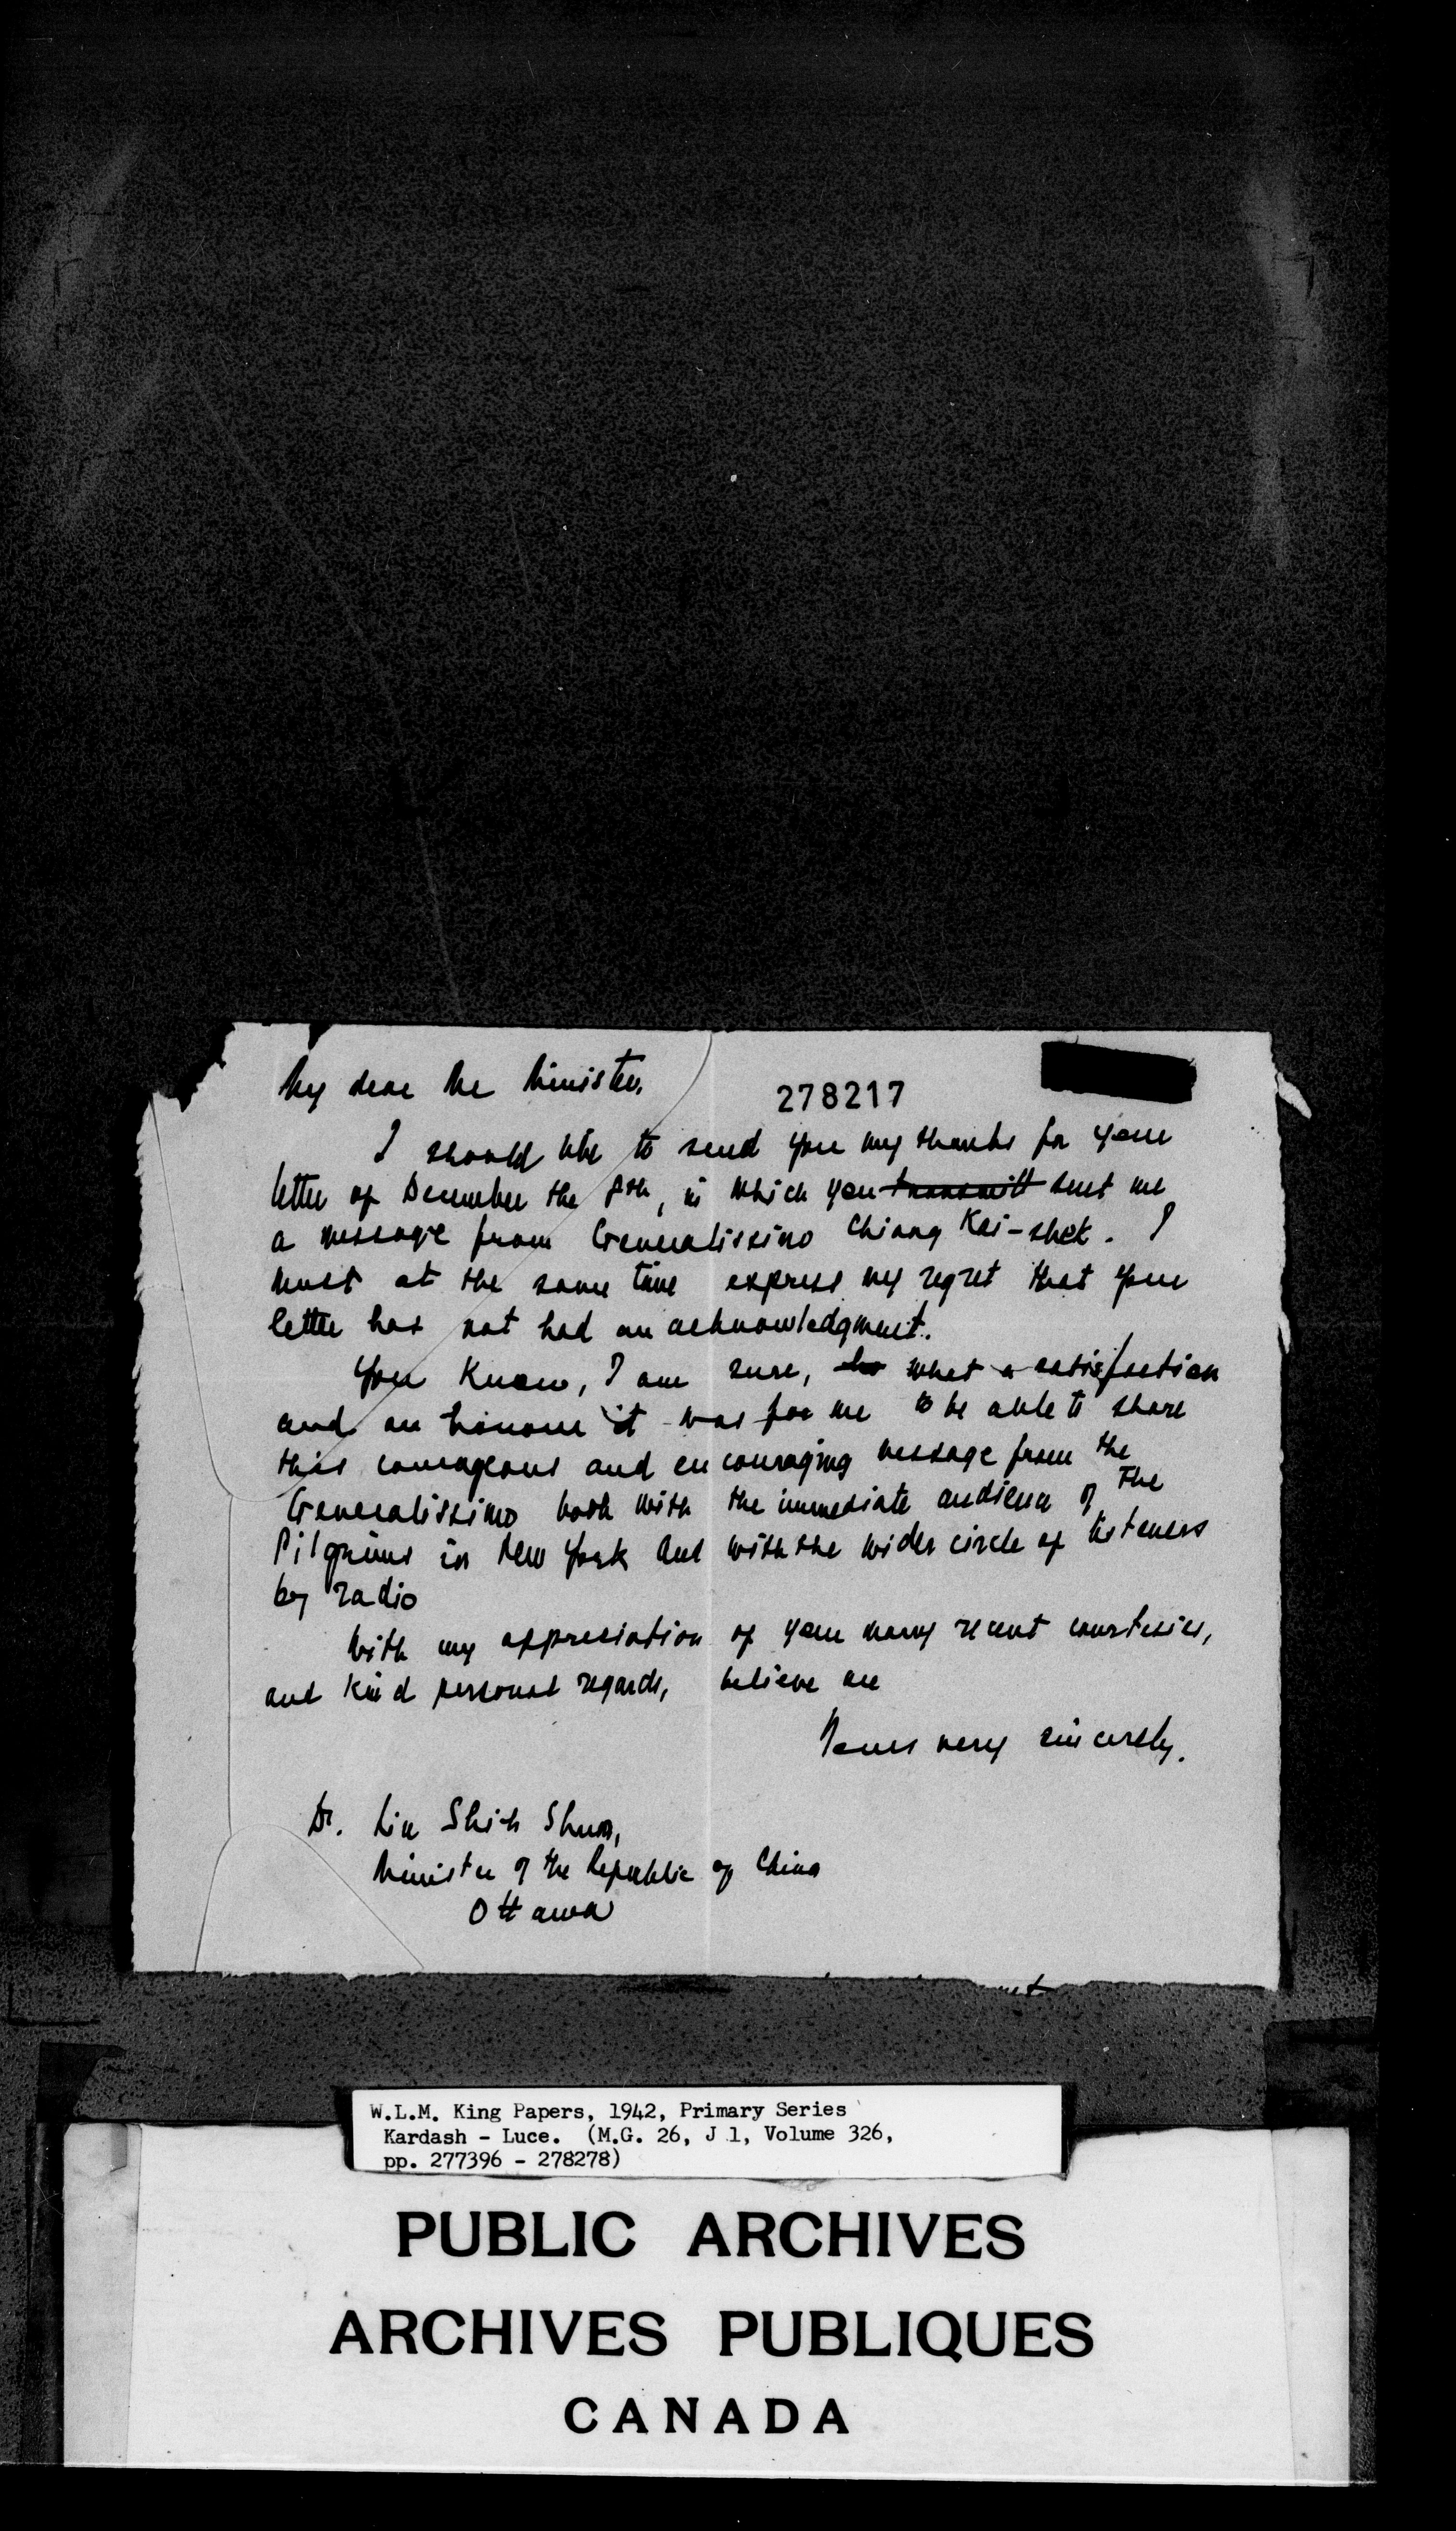 My dear Mr Minister,
278217
I should like to send you my thanks for your
letter of December the 8th, in which you transmitt sent me
a message from Generalissimo Chiang Kai-shek. I
must at the same time express my regret that your
letter has not had an acknowledgment.
You know, I am sure, ho what a satisfaction
and an honour it was for me to be able to share
this courageous and encouraging message from the
Generalissimo both with the immediate audience of The
Pilgrims in New York and with the wider circle of listeners
by radio
With my appreciation of your many recent courtesies,
and kind personal regards, believe me
Yours very sincerely,
Dr. Liu Shih Shun,
Minister of the Republic of China
Ottawa
W.L.M. King Papers, 1942, Primary Series
Kardash - Luce. (M.G. 26, J 1, Volume 326,
pp. 277396 - 278278)
PUBLIC ARCHIVES
ARCHIVES PUBLIQUES
CANADA